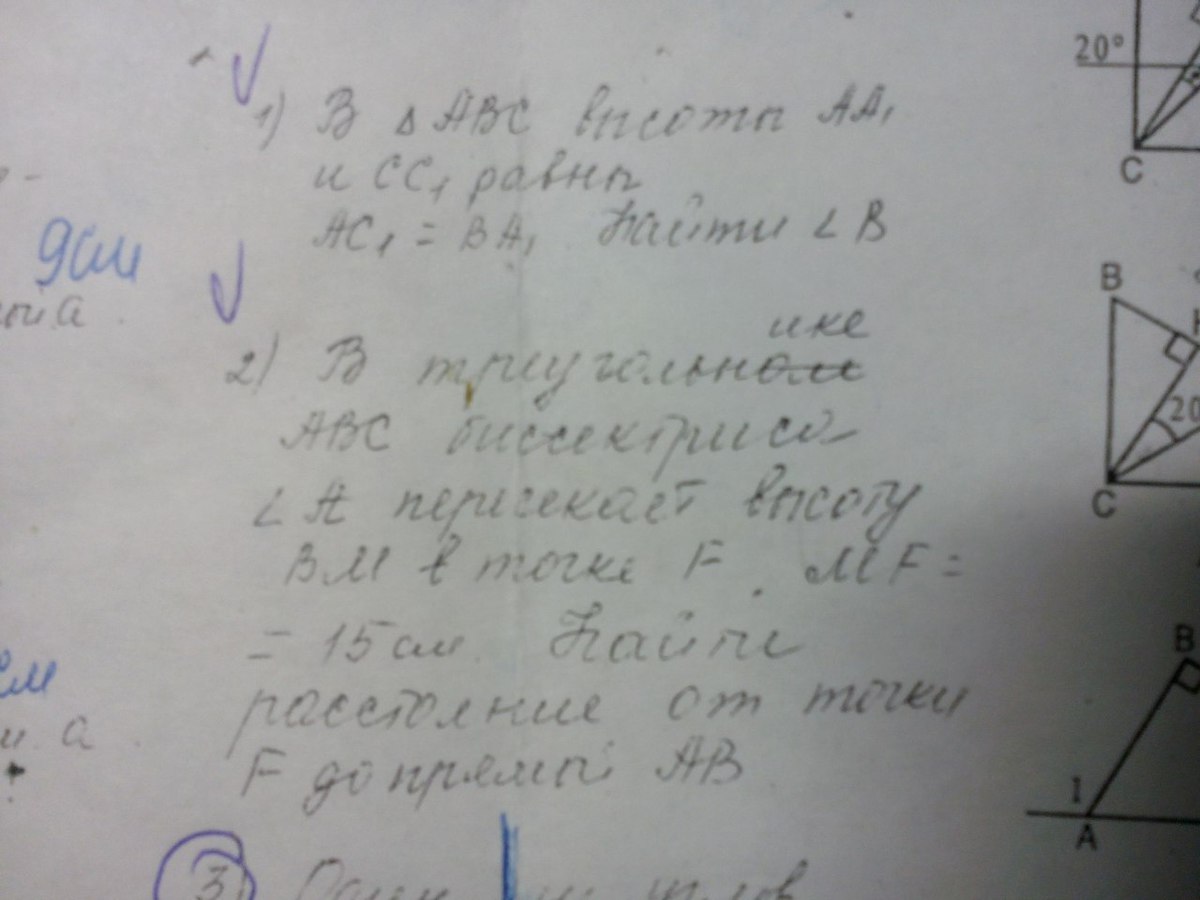 1) В △ ABC высоты AA₁
и CC₁ равны
AC₁ = BA₁. Найти ∠ B
9см
2) В треугольнике
ABC биссектриса
∠ A пересекает высоту
BM в точке F. MF =
= 15 см. Найти
расстояние от точки
F до прямый AB
см
и a
3)
углов
20°
C
B
20
C
B
1
A